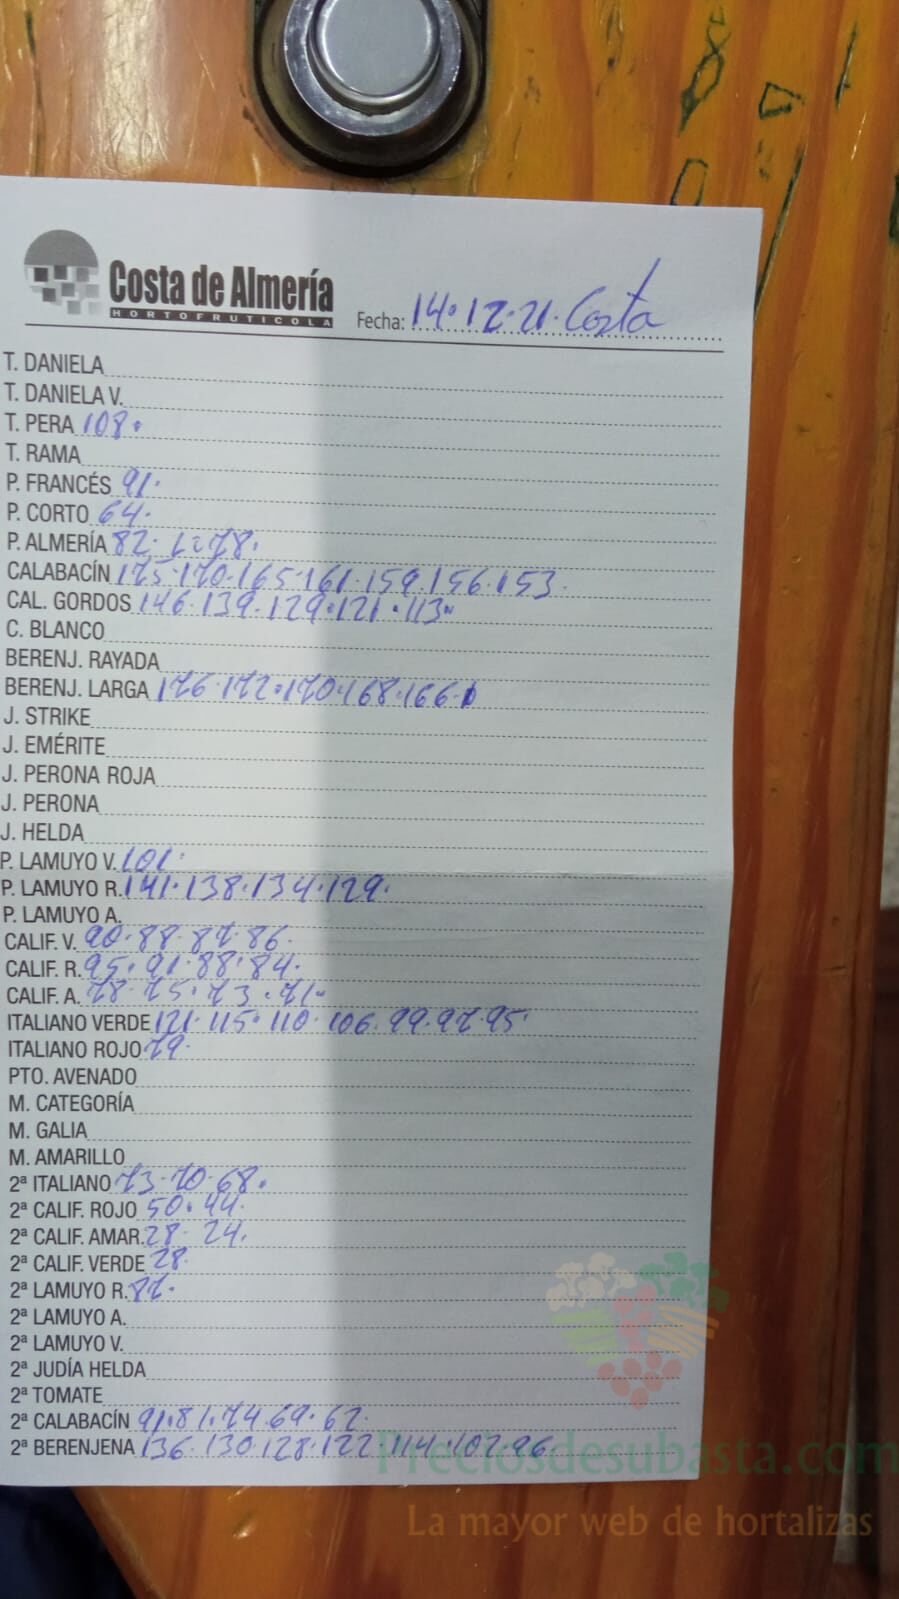 Costa de Almería
HORTOFRUTICOLA
Fecha: 14.12.21. Costa
T. DANIELA
T. DANIELA V.
T. PERA 108.
T. RAMA
P. FRANCÉS 91.
P. CORTO 64.
P. ALMERÍA 82. 78.
CALABACÍN 175.170.165.161.159.156.153.
CAL. GORDOS 146.139.129.121.113.
C. BLANCO
BERENJ. RAYADA
BERENJ. LARGA 176.172.170.168.166.
J. STRIKE
J. EMÉRITE
J. PERONA ROJA
J. PERONA
J. HELDA
P. LAMUYO V. 101.
P. LAMUYO R. 141.138.134.129.
P. LAMUYO A.
CALIF. V. 90.88.87.86.
CALIF. R. 95.91.88.84.
CALIF. A. 78.75.73.71.
ITALIANO VERDE 121.115.110.106.99.97.95.
ITALIANO ROJO 79.
PTO. AVENADO
M. CATEGORÍA
M. GALIA
M. AMARILLO
2ª ITALIANO 73.70.68.
2ª CALIF. ROJO 50.44.
2ª CALIF. AMAR. 28. 24.
2ª CALIF. VERDE 28.
2ª LAMUYO R. 87.
2ª LAMUYO A.
2ª LAMUYO V.
2ª JUDÍA HELDA
2ª TOMATE
2ª CALABACÍN 91.81.74.69.62.
2ª BERENJENA 136.130.128.122.114.102.96
Preciosdesubasta.com
La mayor web de hortalizas